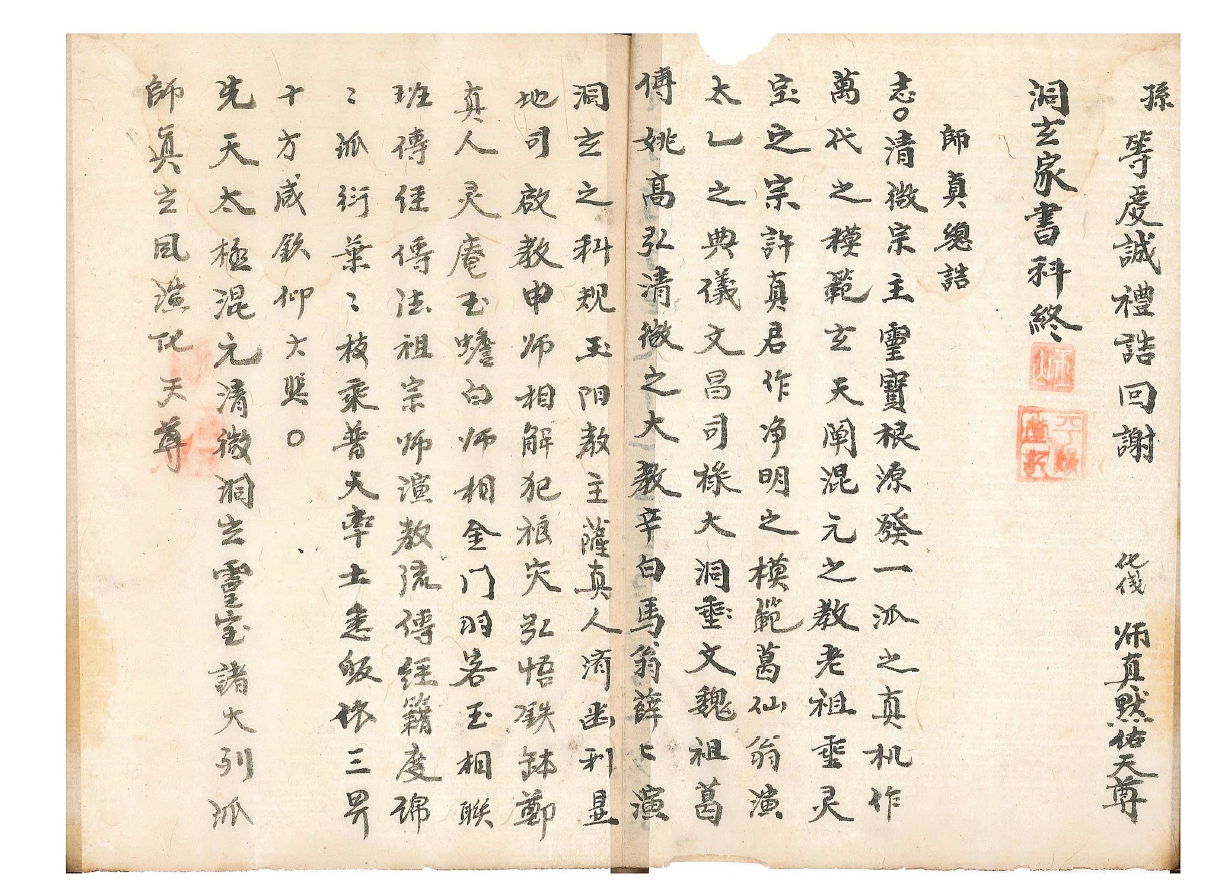 孫
等虔誠禮誥回謝 化俴 师真默佑天尊
洞玄家書科終
師真總誥
志○清微宗主靈寶根源發一派之真机作
萬代之模範玄天闡混元之教老祖垂灵
宝之宗許真君作净明之模範葛仙翁演
太乙之典儀文昌司祿大洞垂文魏祖葛
傅姚高弘清微之大教辛白馬翁薛匕演
洞玄之科規玉阳教主薩真人済幽利显
地司啟教申师相解犯禳灾弘悟鉄鉢鄭
真人灵庵玉蟾白师相金门羽客玉相聯
班傳経傳法祖宗师演教流傳経籍度師
〻派衍葉〻枝乘普天率土悉皈依三界
十方咸欽仰大興○
先天太極混元清微洞玄靈宝諸大列派
師真玄風演化天尊